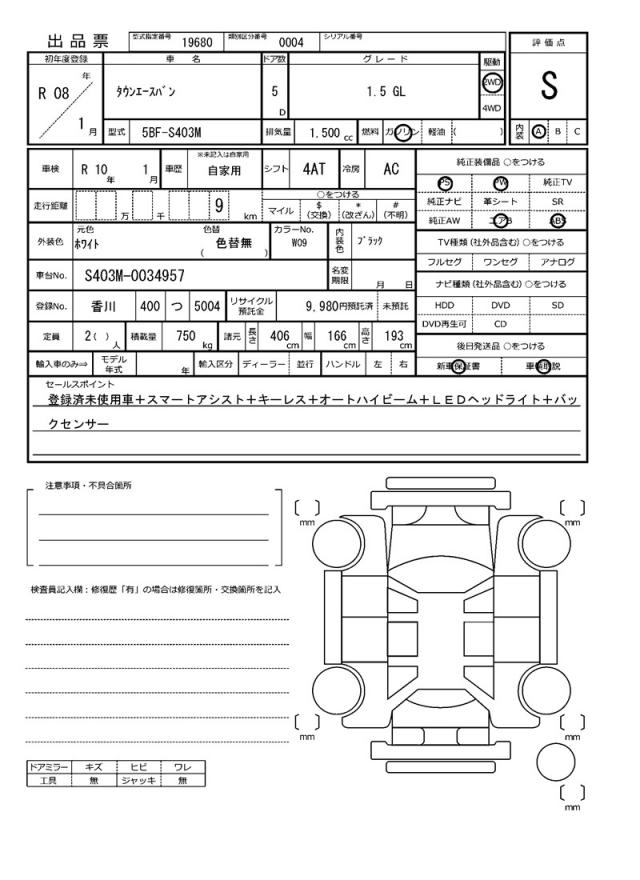 出品票
型式指定番号 19680 類別区分番号 0004 シリアル番号
初年度登録 車名 ドア数 グレード 駆動 評価点
R 08 年 1 月 タウンエースバン 5 D 1.5 GL 2WD 4WD S
型式 5BF-S403M 排気量 1,500 cc 燃料 ガソリン 軽油 ( ) 内装 A B C
車検 R 10 年 1 月 車歴 ※未記入は自家用 自家用 シフト 4AT 冷房 AC
走行距離 万 千 9 km ○をつける
マイル $ (交換) * (改ざん) # (不明)
外装色 元色 ホワイト 色替 色替無 ( ) カラーNo. W09 内装色 ブラック
車台No. S403M-0034957 名変期限 月 日
登録No. 香川 400 つ 5004 リサイクル預託金 9,980円預託済 未預託
定員 2( )人 積載量 750 kg 諸元 長さ 406 cm 幅 166 cm 高さ 193 cm
輸入車のみ⇒ モデル年式 年 輸入区分 ディーラー 並行 ハンドル 左 右
純正装備品 ○をつける
PS PW 純正TV
純正ナビ 革シート SR
純正AW エアB ABS
TV種類 (社外品含む) ○をつける
フルセグ ワンセグ アナログ
ナビ種類 (社外品含む) ○をつける
HDD DVD SD
DVD再生可 CD
後日発送品 ○をつける
新車保証書 車輌取説
セールスポイント
登録済未使用車＋スマートアシスト＋キーレス＋オートハイビーム＋ＬＥＤヘッドライト＋バッ
クセンサー
注意事項・不具合箇所
検査員記入欄：修復歴「有」の場合は修復箇所・交換箇所を記入
mm
mm
mm
mm
mm
ドアミラー キズ ヒビ ワレ
工具 無 ジャッキ 無